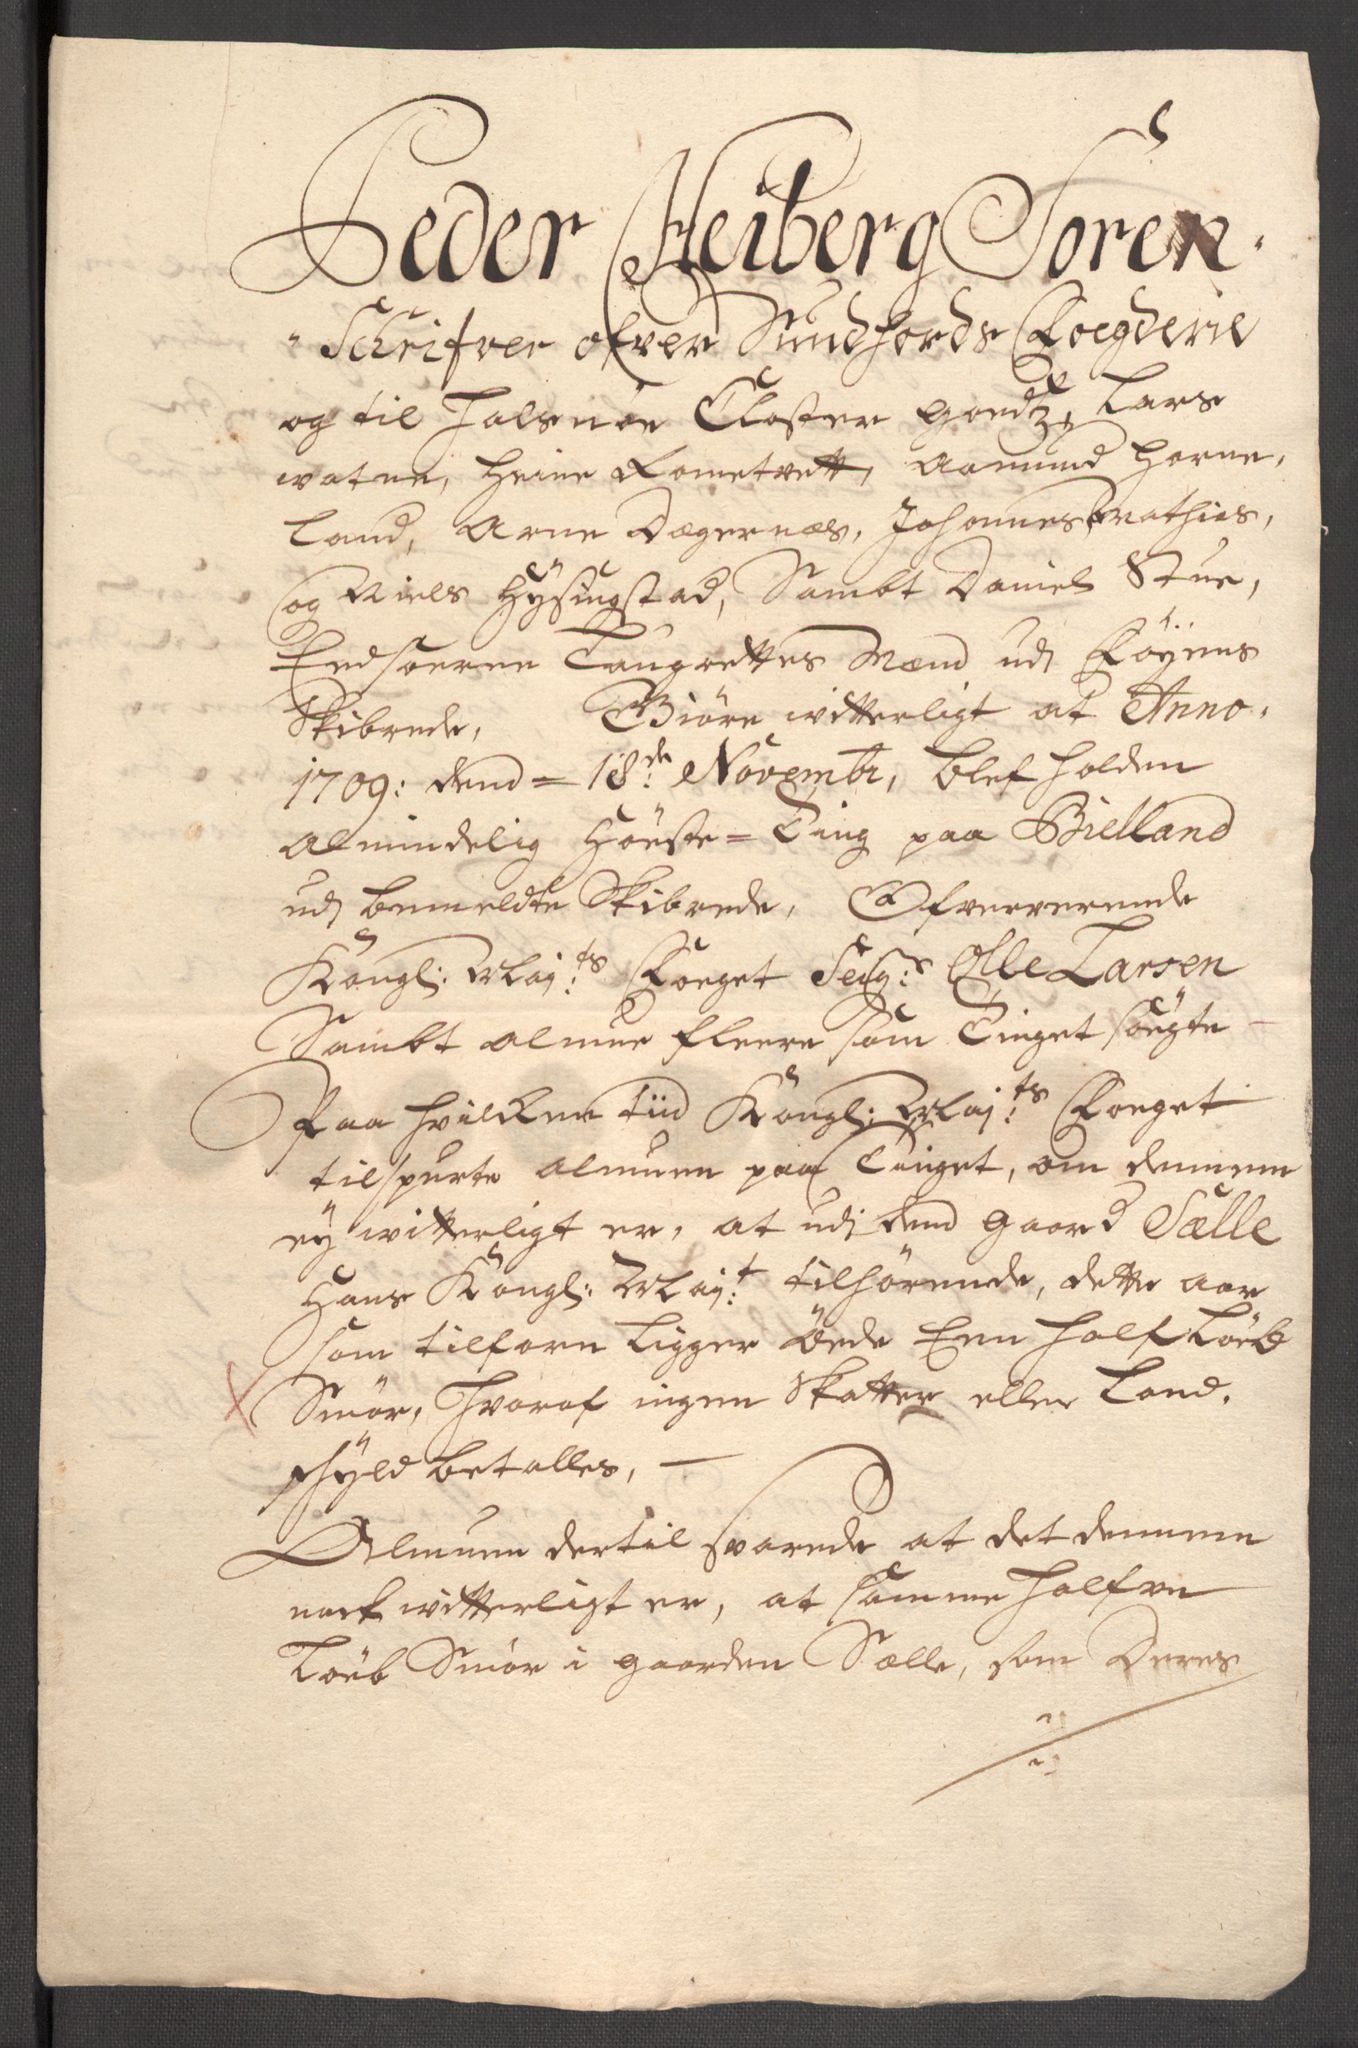 Peder Heiberg Soren-
-Schrifver ofver Sundhords Foegderie
og til Halsnöe Closter Goedtz, Lars
watne, Heine Rometvett, Aamund Horne-
land, Arne Dagernæs, Johannes Mathies,
og Niels Hÿsingstad, Sambt Daniel Stue,
Eedsorne Laugrettes Mænd udj Föÿens
Skibrede, Giöre witterligt at Anno-
1709: dend = 18de Novembr, blef holden
almindelig Höste = Ting paa Bielland
udj bemeldte Skibrede, Ofververende
Kongl: Maj:ts Foeget Seig:r Olle Larsen
Sambt Almue fleere som Tinget söegte
Paa hvilken tiid Kongl: Maj:ts Foeget
tilspurte Almuen paa Tinget, om dennem
eÿ witterligt er, at udi dend gaard Sælle
Hans Kongl: Maj:t tilhörende, dette aar
som tilforn ligger öede Een half Löeb
Smör, Hvoraf ingen Skatter eller Land-
schÿld betalles, —
Almuen dertil svarede at det dennem
nock witterligt er, at samme halfve
Löeb Smör i gaarden Sælle, som Deres